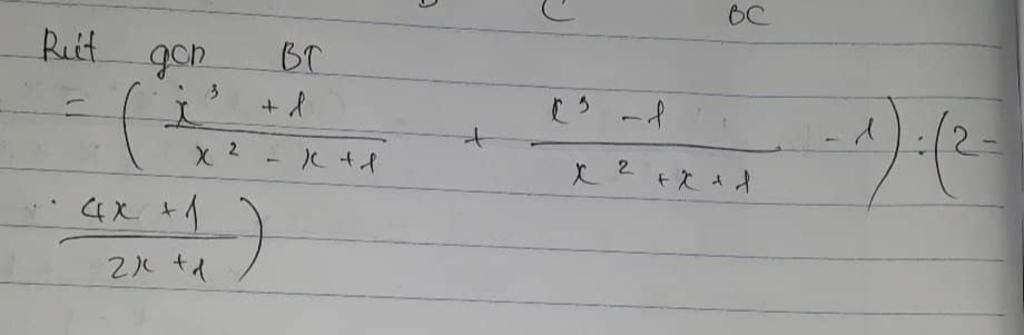 C BC
Rút gọn BT
= ( x³ + 1 / x² - x + 1 + x³ - 1 / x² + x + 1 - 1 ) : ( 2 -
4x + 1 / 2x + 1 )